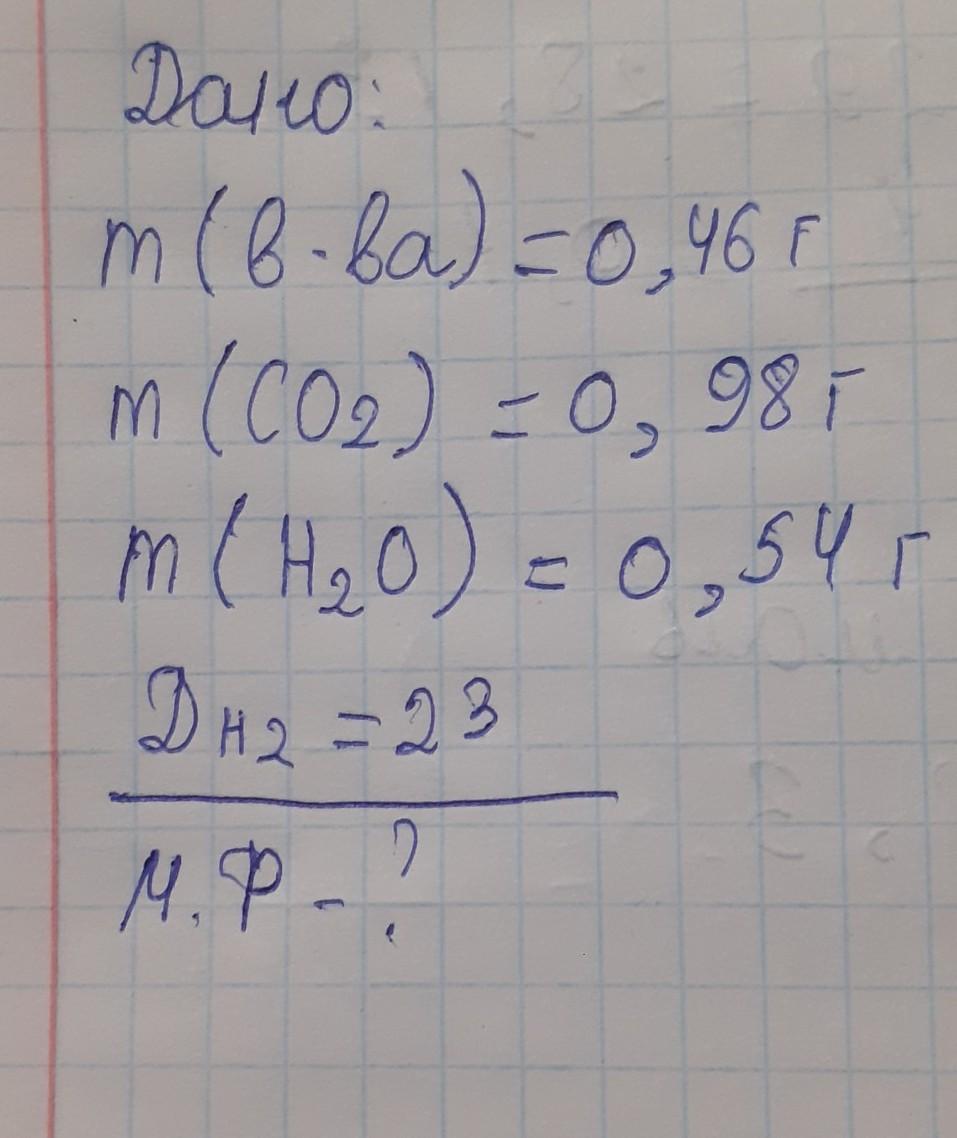 Дано:
m(в-ва)=0,46 г
m(CO2) = 0,98 г
m(H2O) = 0,54 г
DH2 = 23
М.Ф - ?